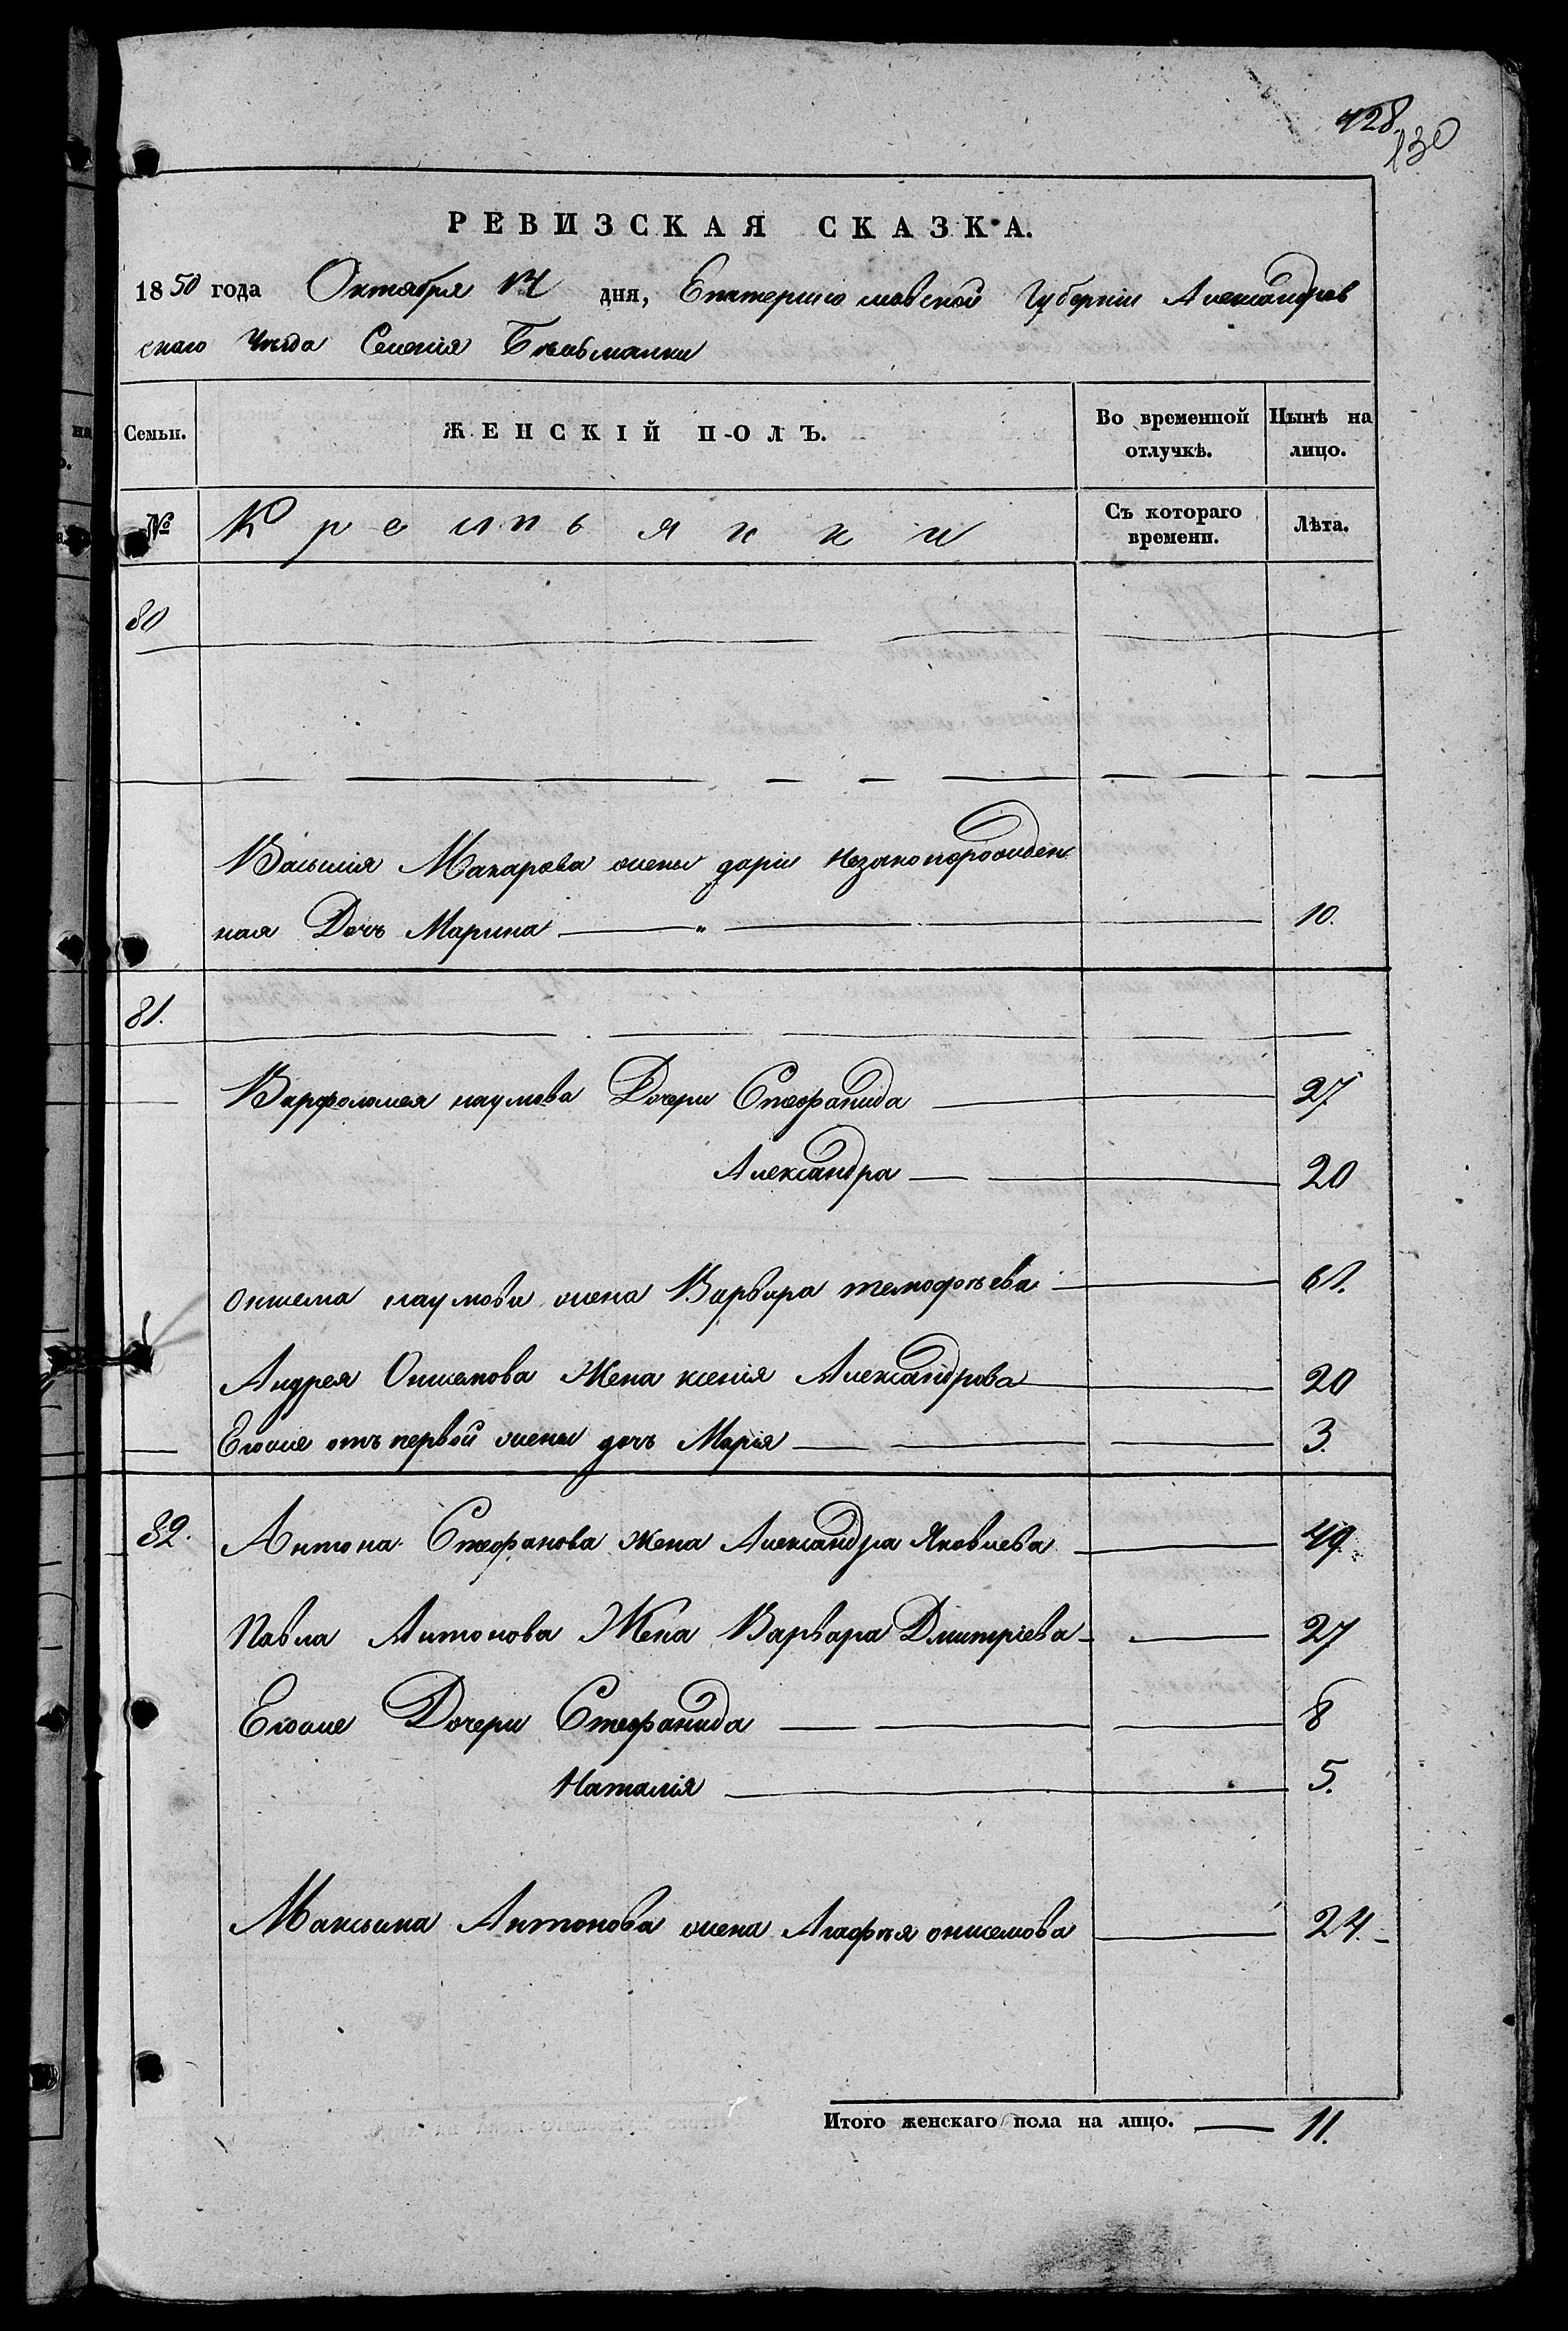 428.
130
РЕВИЗСКАЯ СКАЗКА.
1850 года Октября 14 дня, Екатеринославской Губерніи Александров
скаго Уѣзда Селенія Бѣльманки
Семьи. ЖЕНСКІЙ ПОЛЪ. Во временной отлучкѣ. Нынѣ на лицо.
№ Крестьянки Съ котораго времени. Лѣта.
80
Василія Макарова жены дарiи Незаконорожден
ная Дочъ Марина 10.
81.
Варфоломея наумова Дочери Стефанида 27
Александра 20
онисема наумова жена Варвара темофѣева 61.
Андрея Онисемова Жена ксенія Александрова 20
Егоже отъ первой жены дочъ Марія 3.
82. Антона Стефанова жена Александра Яковлева 49
Павла Антонова Жена Варвара Дмитріева 27
Егоже Дочери Стефанида 8
Наталія 5.
Максима Антонова жена Агафѣя онисемова 24.
Итого женскаго пола на лицо. 11.